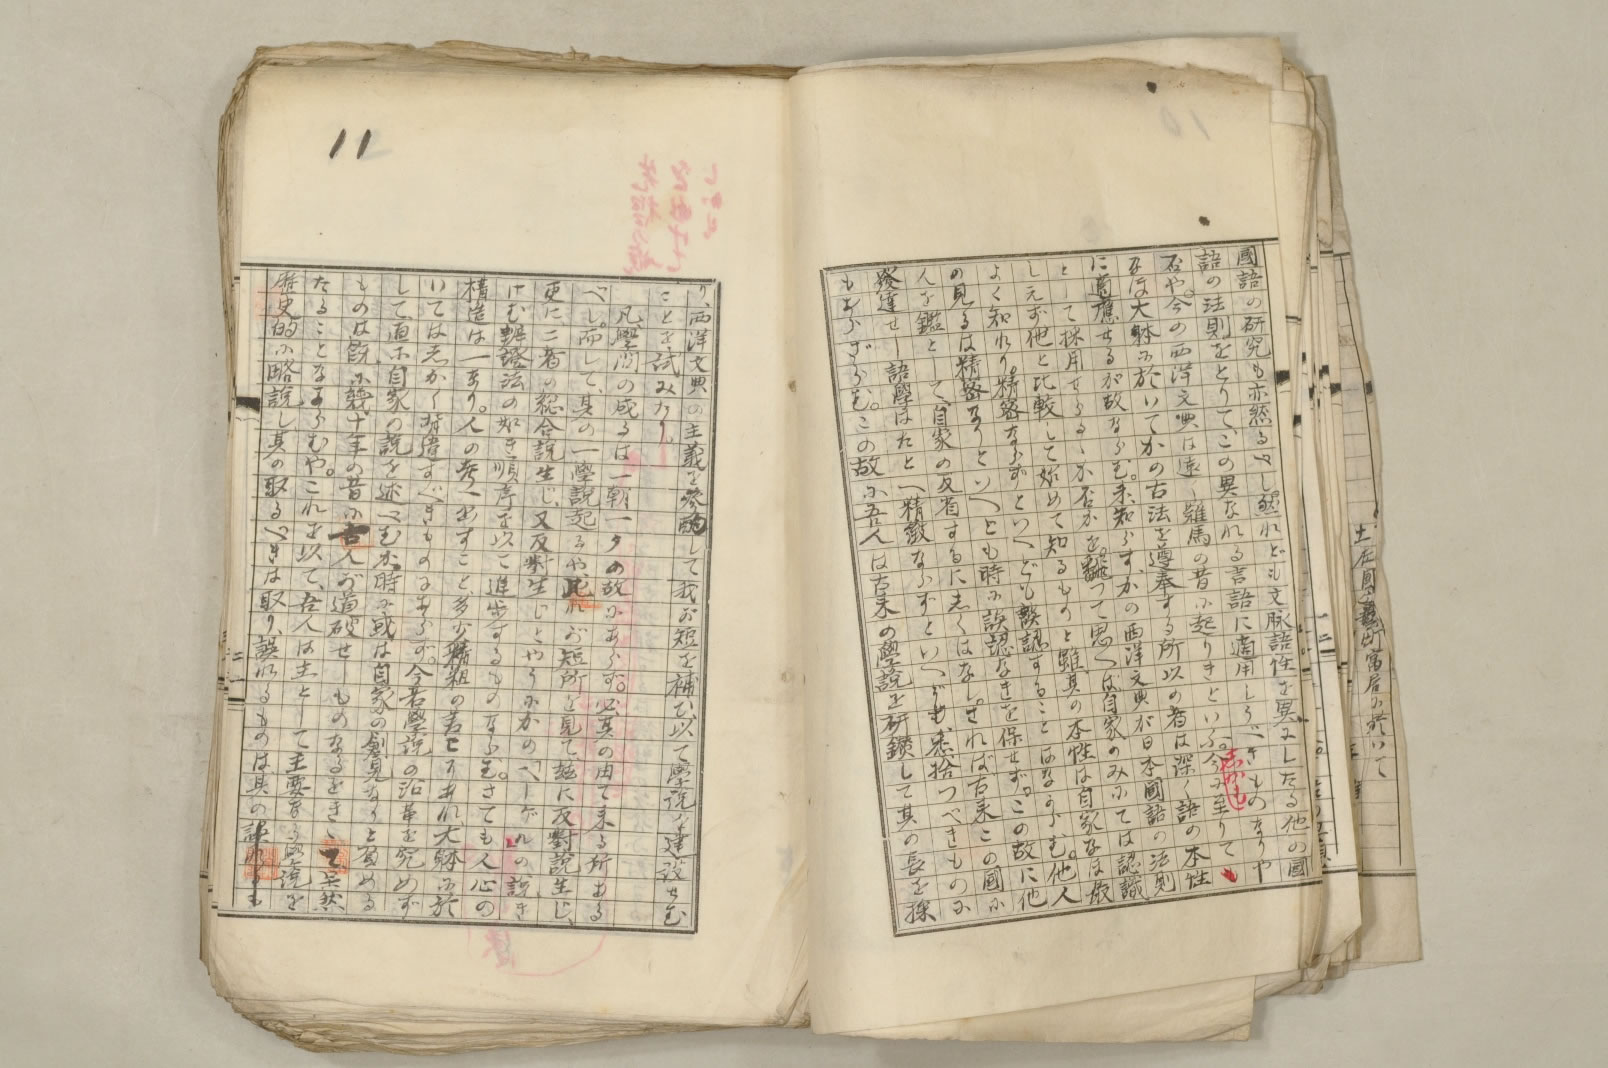 國語の研究も亦然るべし。然れども文脈語性を異にしたる他の國
語の法則をとりて、この異なれる言語に適用しうべきものなりや
否や。今の西洋文典は遠く羅馬の昔に起りきといふ。今に至りて
しかも
なほ大躰に於いてかの古法を遵奉する所以の者は深く語の本性
に適應せるが故ならむ。未知らず、かの西洋文典が日本國語の法則
として採用せらるゝか否かを。飜つて思へば自家のみにては認識
しえず他と比較して始めて知るものと雖其の本性は自家なほ最
よく知れり。精密ならずといへども誤認することはなからむ。他人
の見るは精密なりといへども時に誤認なきを保せず。この故に他
人を鑑として、自家の反省するに志くはなし。されば古来この國に
發達せし語學はたとへ精緻ならずといへども、悉捨つべきものに
もあらざらむ。この故に吾人は古来の學説を研鑽して其の長を採
土佐國
町富
に於いて
11
り、西洋文典の主義を參酌して我が短を補ひ以て學説を建設せむ
ことを試みたり。
凡學問の成るは一朝一夕の故にあらず。必其の由て来る所ある
べし。而して、其の一學説起るや此れが短所を見て玆に反對説生じ、
更に、二者の綜合説生じ、又反對生じとやうにかの「ヘーゲル」の説き
けむ辨證法の如き順序を以て進歩するものならむ。さても人心の
構造は一なり。人の考へ出すこと多少精粗の差こそあれ大躰に於
いては志かく背違すべきものにあらず。今若學説の沿革を究めず
して、直に自家の説を述べむか、時に或は自家の創見なりと思へる
ものは既に幾十年の昔に古人が道破せしものなるをきいて呆然
たることなからむや。これを以て、吾人は主として主要なる學説を
歴史的に略説し其の取るべきは取り、誤れるものは其の誤れる